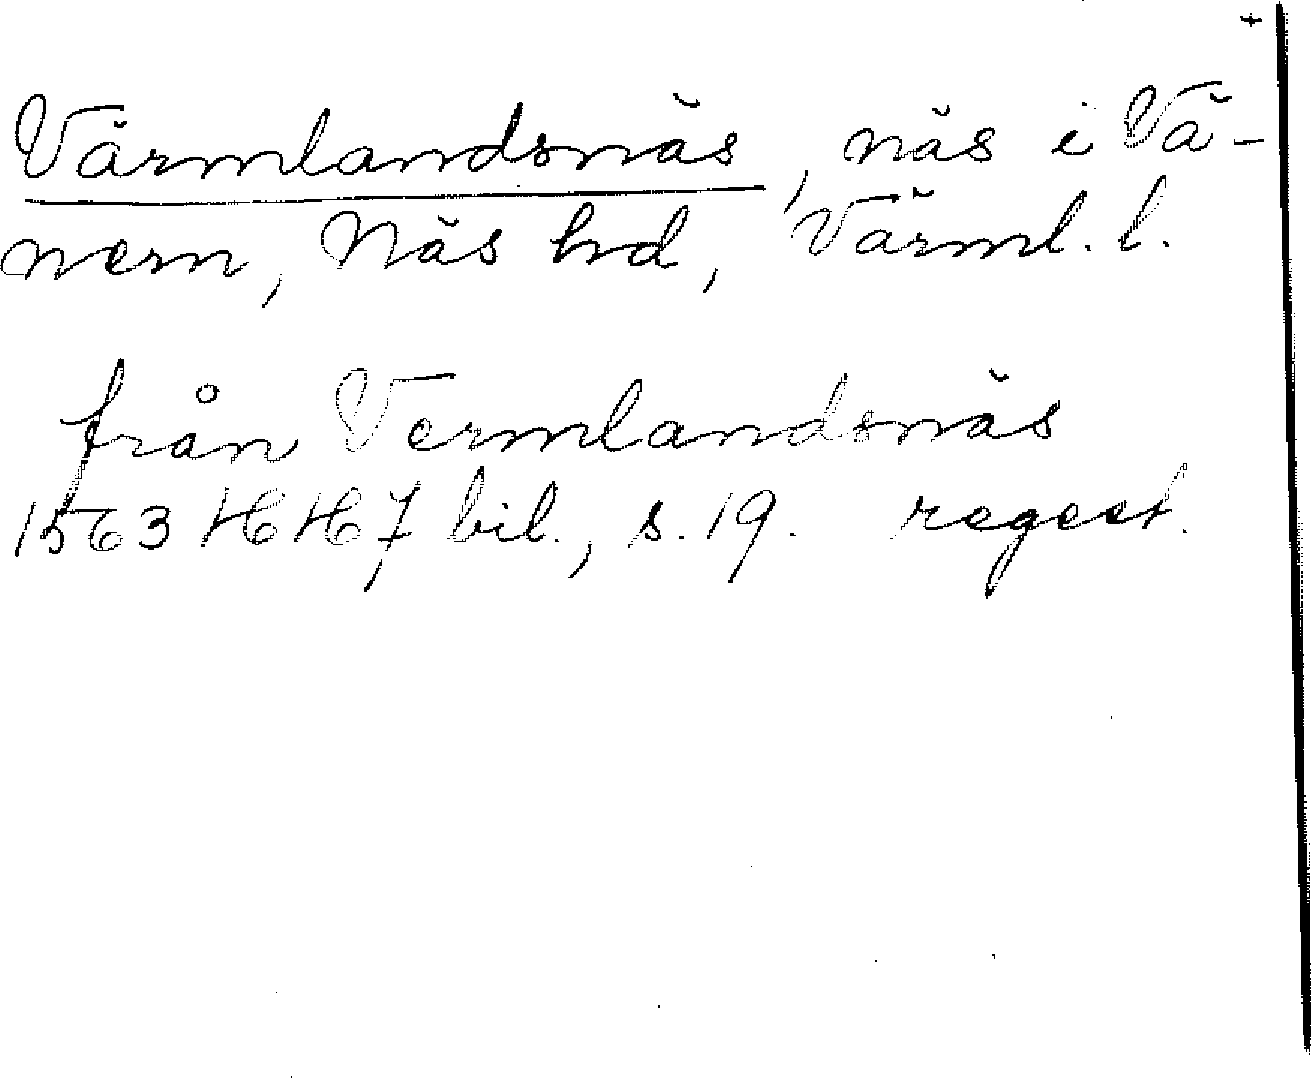 +
Värmlandsnäs, näs i Vä-
nern, Näs hd, Värml. l.
från Vermlandsnäs
1563 HH 7 bil., s. 19. regest.